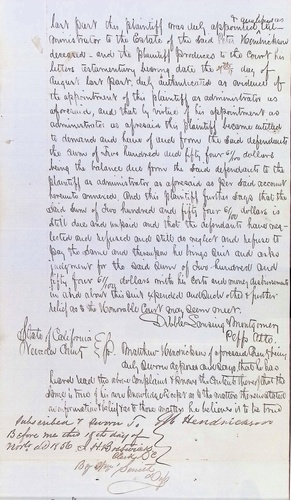 last past this plaintiff was duly appointed & qualified as ad-
ministrator to the Estate of the said Hendrickson
deceased - and the Plaintiff produces to the Court his
letters testamentary bearing date the day of
August last past, duly authenticated as evidence of
the appointment of this plaintiff as administrator as
aforesaid, and that by virtue of his appointment as
administrator as aforesaid this Plaintiff became entitled
to demand and have of and from the said defendants
the sum of two hundred and fifty four 61/100 dollars
being the balance due from the said defendants to the
plaintiff as administrator as aforesaid as per said account
hereunto annexed. And this plaintiff further says that the
said sum of two hundred and fifty four 61/100 dollars is
still due and unpaid and that the defendants have neg-
lected and refused and still do neglect and refuse to
pay the same and thereupon he brings suit and asks
judgment for the said sum of two hundred and
fifty four 61/100 dollars with his costs and money disbursements
in and about this suit expended and such other & further
relief as to the Honorable Court may seem meet.
& Montgomery
Plffs Attos.
State of California
Nevada County
Hendrickson aforesaid Plaintiff being
duly sworn deposes and says that he has
heard read the above Complaint & knows the contents thereof that the
same is true of his own knowledge except as to the matters therein stated
on information & belief & as to those matters he believes it to be true
Subscribed & sworn To
Hendrickson
Before me this 18th day of
Novr A.D. 1856
Clerk
By Wm Smith
Dep